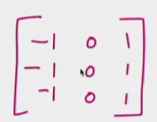 -1 0 1
-1 0 1
-1 0 1